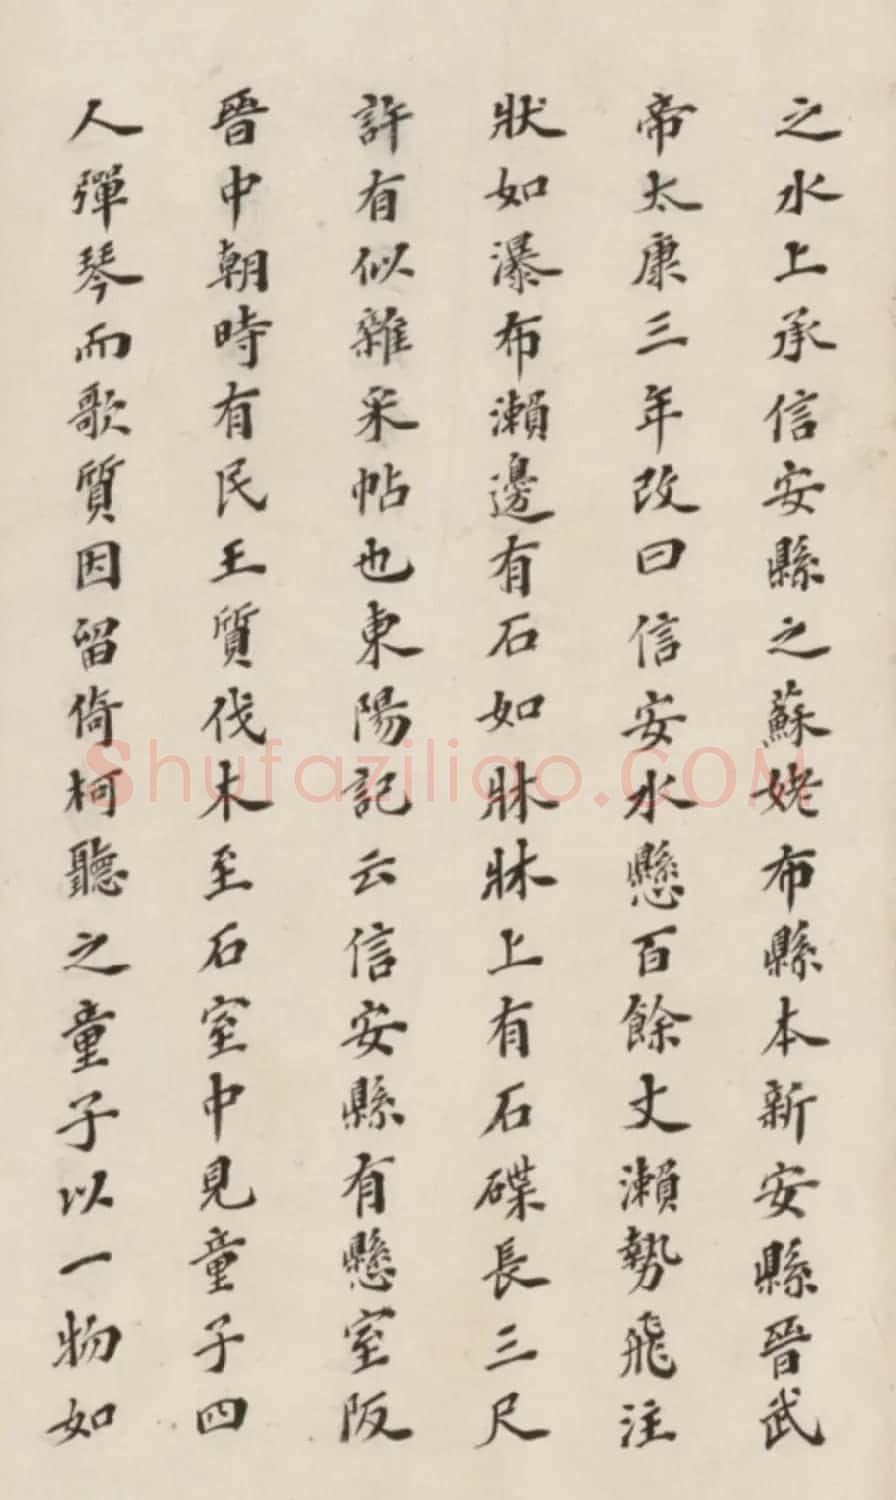 之水上承信安縣之蘇姥布縣本新安縣晉武
帝太康三年改曰信安水懸百餘丈瀨勢飛注
狀如瀑布瀨邊有石如牀牀上有石牒長三尺
許有似雜采帖也東陽記云信安縣有懸室阪
晉中朝時有民王質伐木至石室中見童子四
人彈琴而歌質因留倚柯聽之童子以一物如
Shufaziliao.COM